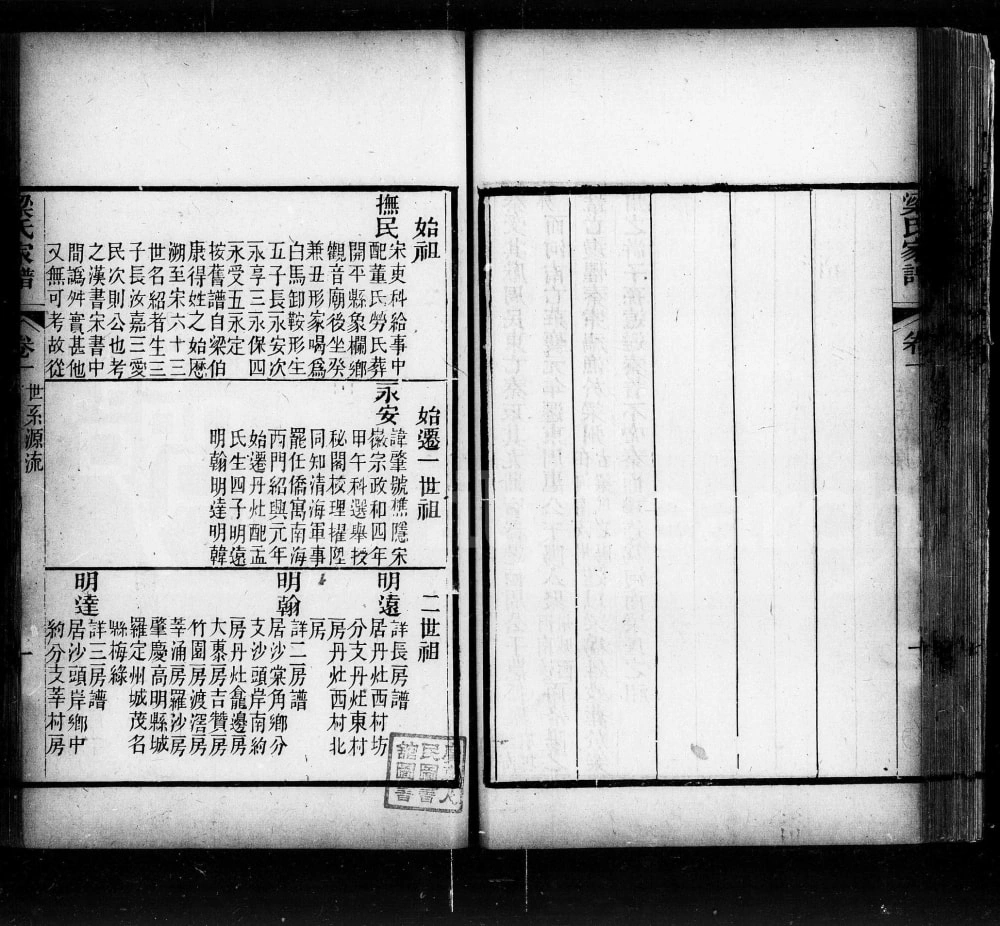 梁氏家譜
卷一
始祖
撫民
宋吏科給事中
配董氏勞氏葬
開平縣象欄鄉
觀音廟後坐癸
兼丑形家喝爲
白馬卸鞍形生
五子長永安次
永享三永保四
永受五永定
按舊譜自梁伯
康得姓之始歷
溯至宋六十三
世名紹者生三
子長汝嘉三愛
民次則公也考
之漢書宋書中
間譌舛實甚他
又無可考故從
始遷一世祖
永安
諱肇號樵隱宋
徽宗政和四年
甲午科選舉授
秘閣校理擢陞
同知清海軍事
罷任僑寓南海
西門紹興元年
始遷丹灶配孟
氏生四子明遠
明翰明達明韓
二世祖
明遠
詳長房譜
居丹灶西村坊
分支丹灶東村
房丹灶西村北
房
明翰
詳二房譜
居沙棠角鄉分
支沙頭岸南約
房丹灶龕邊房
大㙐房吉贊房
竹園房渡滘房
莘涌房羅沙房
肇慶高明縣城
羅定州城茂名
縣梅綠
明達
詳三房譜
居沙頭岸鄉中
約分支莘村房
梁氏家譜
卷一
世系源流
一